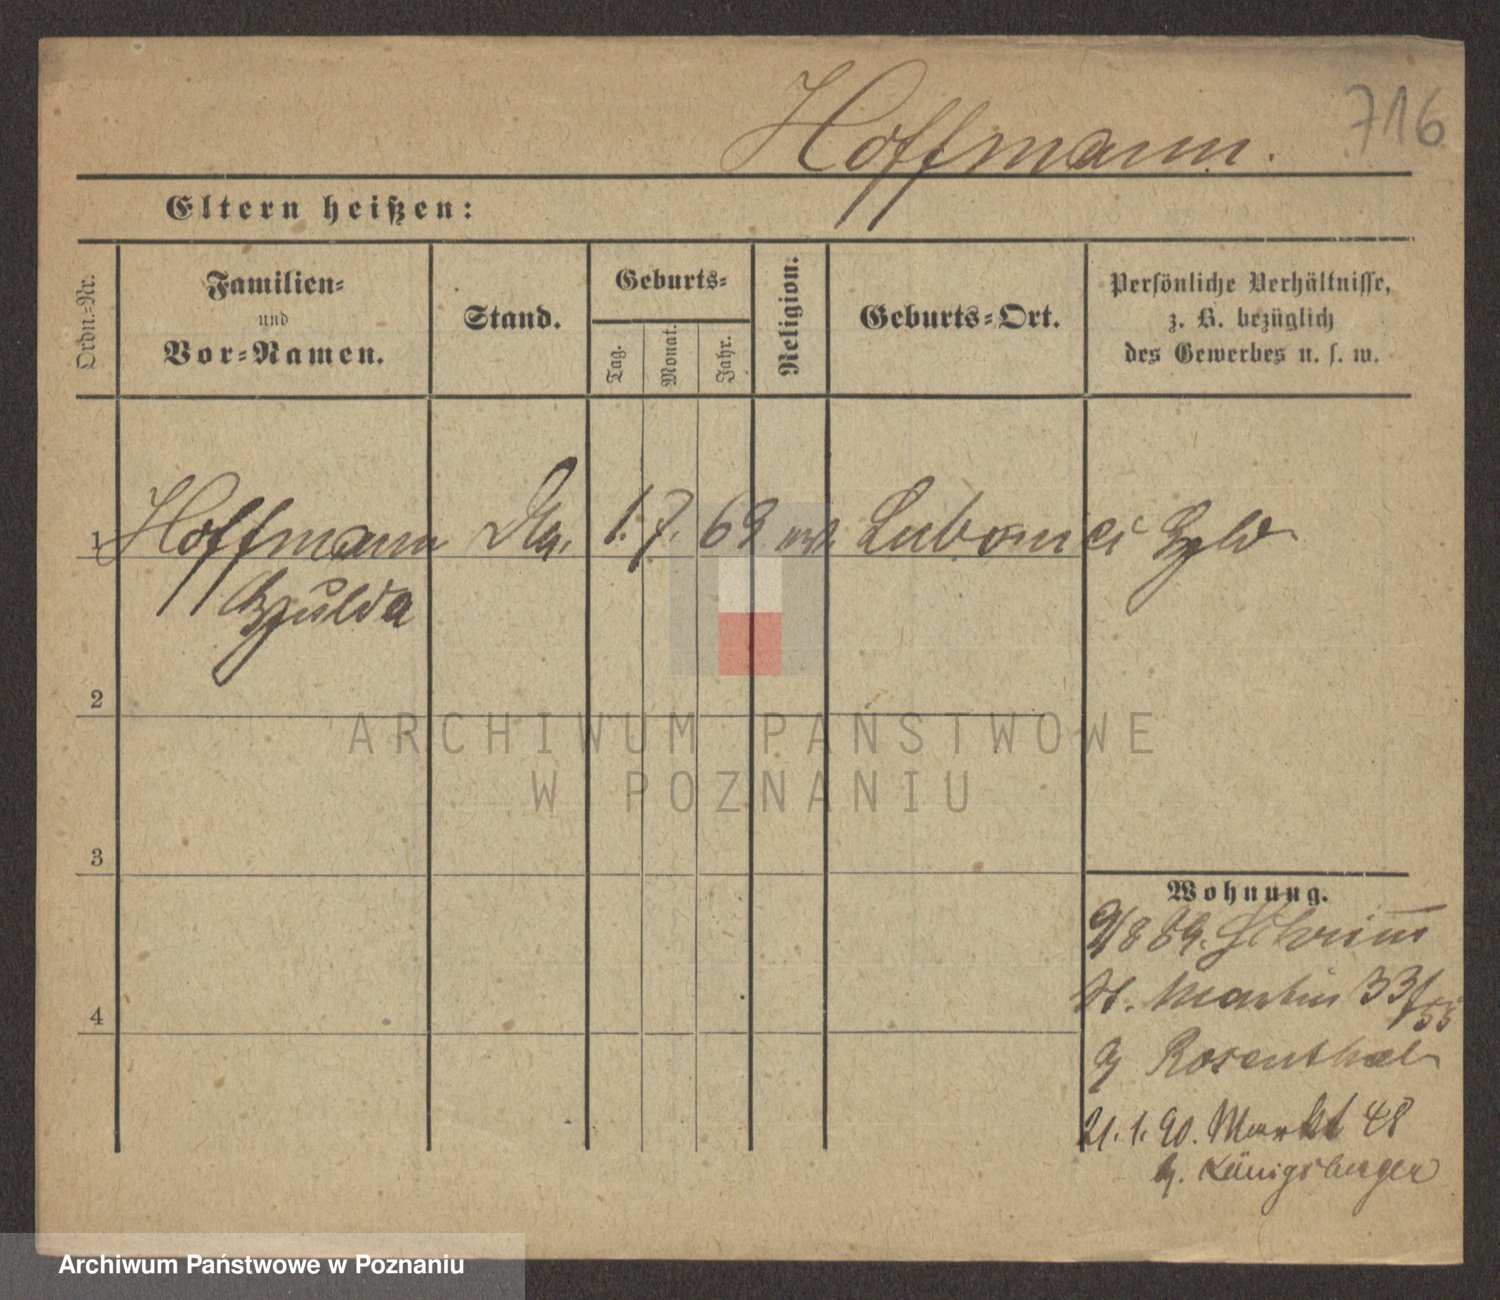 716
Hoffmann.
Eltern heißen:
Ordn.-Nr.
Familien-
und
Vor-Namen.
Stand.
Geburts-
Tag.
Monat.
Jahr.
Religion.
Geburts-Ort.
Persönliche Verhältnisse,
z. B. bezüglich
des Gewerbes u. s. w.
1 Hoffmann 1. 7. 69
2
3
4
ARCHIWUM PAŃSTWOWE
W POZNANIU
Wohnung.
9/8 89. Schrimm
St. Martin 33/55
Rosenthal
21.1.90. Markt 48
b. Königsberger
Archiwum Państwowe w Poznaniu